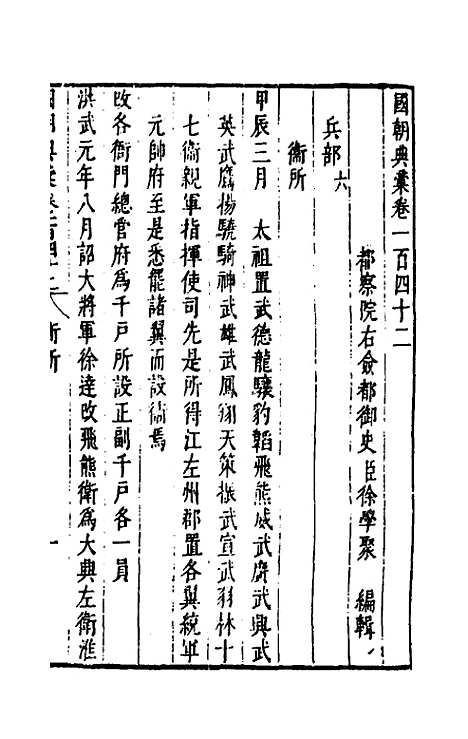 國朝典彙卷一百四十二
都察院右僉都御史臣徐學聚 編輯
兵部 六
衞所
甲辰三月 太祖置武德龍驤豹韜飛熊威武廣武興武
英武鷹揚驍騎神武雄武鳳翔天策振武宣武羽林十
七衞親軍指揮使司先是所得江左州郡置各翼統軍
元帥府至是悉罷諸翼而設衞焉
改各衙門總管府為千戸所設正副千戸各一員
洪武元年八月詔大將軍徐達改飛熊衛為大興左衛淮
國朝典彙卷 衞所 一